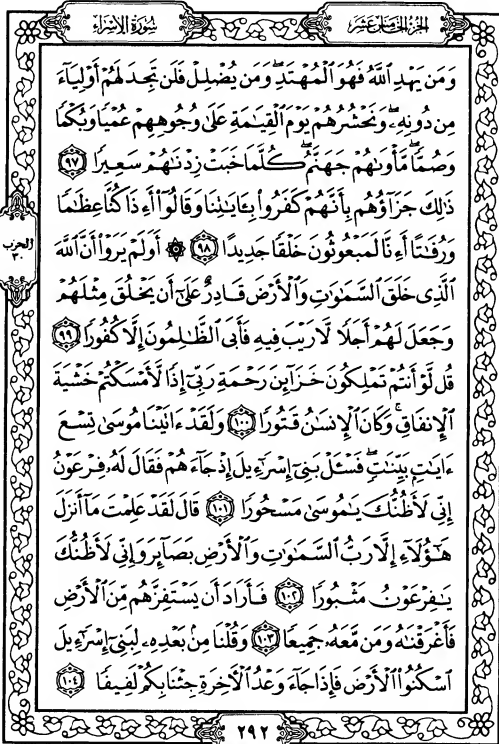 الجزء الخامس عشر
سورة الإسراء
وَمَن يَهْدِ ٱللَّهُ فَهُوَ ٱلْمُهْتَدِۖ وَمَن يُضْلِلْ فَلَن تَجِدَ لَهُمْ أَوْلِيَآءَ
مِن دُونِهِۦۖ وَنَحْشُرُهُمْ يَوْمَ ٱلْقِيَٰمَةِ عَلَىٰ وُجُوهِهِمْ عُمْيًا وَبُكْمًا
وَصُمًّاۖ مَّأْوَىٰهُمْ جَهَنَّمُۖ كُلَّمَا خَبَتْ زِدْنَٰهُمْ سَعِيرًا ٩٧
ذَٰلِكَ جَزَآؤُهُم بِأَنَّهُمْ كَفَرُوا۟ بِـَٔايَٰتِنَا وَقَالُوٓا۟ أَءِذَا كُنَّا عِظَٰمًا
وَرُفَٰتًا أَءِنَّا لَمَبْعُوثُونَ خَلْقًا جَدِيدًا ٩٨ ۞ أَوَلَمْ يَرَوْا۟ أَنَّ ٱللَّهَ
ٱلَّذِى خَلَقَ ٱلسَّمَٰوَٰتِ وَٱلْأَرْضَ قَادِرٌ عَلَىٰٓ أَن يَخْلُقَ مِثْلَهُمْ
وَجَعَلَ لَهُمْ أَجَلًا لَّا رَيْبَ فِيهِ فَأَبَى ٱلظَّٰلِمُونَ إِلَّا كُفُورًا ٩٩
قُل لَّوْ أَنتُمْ تَمْلِكُونَ خَزَآئِنَ رَحْمَةِ رَبِّىٓ إِذًا لَّأَمْسَكْتُمْ خَشْيَةَ
ٱلْإِنفَاقِۚ وَكَانَ ٱلْإِنسَٰنُ قَتُورًا ١٠٠ وَلَقَدْ ءَاتَيْنَا مُوسَىٰ تِسْعَ
ءَايَٰتٍۭ بَيِّنَٰتٍۖ فَسْـَٔلْ بَنِىٓ إِسْرَٰٓءِيلَ إِذْ جَآءَهُمْ فَقَالَ لَهُۥ فِرْعَوْنُ
إِنِّى لَأَظُنُّكَ يَٰمُوسَىٰ مَسْحُورًا ١٠١ قَالَ لَقَدْ عَلِمْتَ مَآ أَنزَلَ
هَٰٓؤُلَآءِ إِلَّا رَبُّ ٱلسَّمَٰوَٰتِ وَٱلْأَرْضِ بَصَآئِرَ وَإِنِّى لَأَظُنُّكَ
يَٰفِرْعَوْنُ مَثْبُورًا ١٠٢ فَأَرَادَ أَن يَسْتَفِزَّهُم مِّنَ ٱلْأَرْضِ
فَأَغْرَقْنَٰهُ وَمَن مَّعَهُۥ جَمِيعًا ١٠٣ وَقُلْنَا مِنۢ بَعْدِهِۦ لِبَنِىٓ إِسْرَٰٓءِيلَ
ٱسْكُنُوا۟ ٱلْأَرْضَ فَإِذَا جَآءَ وَعْدُ ٱلْـَٔاخِرَةِ جِئْنَا بِكُمْ لَفِيفًا ١٠٤
الحزب
٣٠
٢٩٢